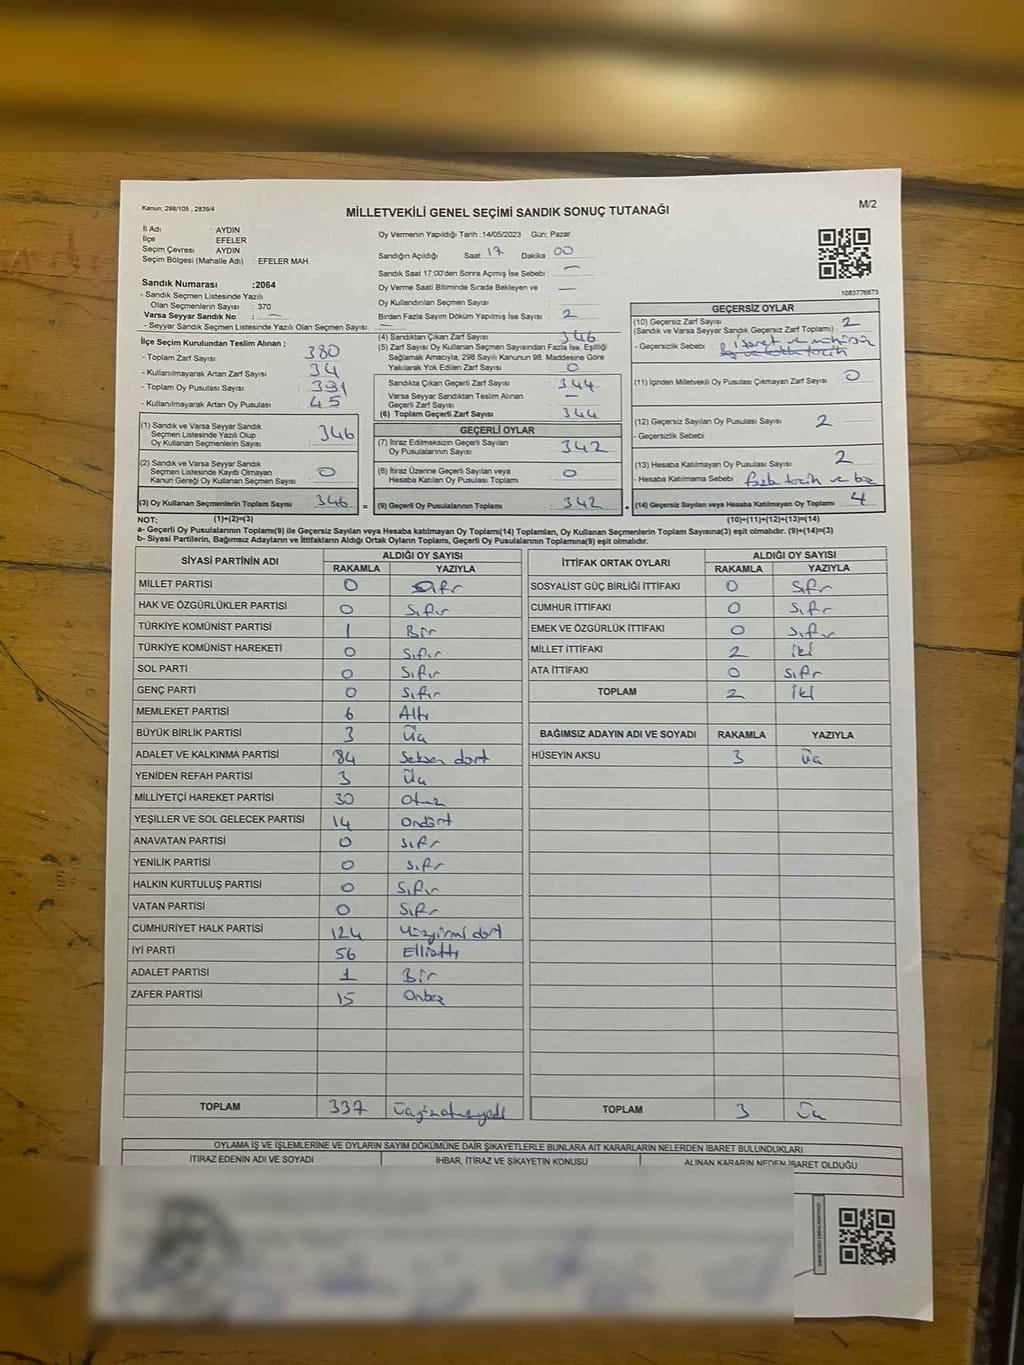 Kanun; 298/105 , 2839/4
MİLLETVEKİLİ GENEL SEÇİMİ SANDIK SONUÇ TUTANAĞI
M/2
İl Adı : AYDIN
İlçe : EFELER
Seçim Çevresi : AYDIN
Seçim Bölgesi (Mahalle Adı) : EFELER MAH.
Sandık Numarası :2064
- Sandık Seçmen Listesinde Yazılı
Olan Seçmenlerin Sayısı : 370
Varsa Seyyar Sandık No : —
- Seyyar Sandık Seçmen Listesinde Yazılı Olan Seçmen Sayısı: —
İlçe Seçim Kurulundan Teslim Alınan ;
- Toplam Zarf Sayısı : 380
- Kullanılmayarak Artan Zarf Sayısı : 34
- Toplam Oy Pusulası Sayısı : 391
- Kullanılmayarak Artan Oy Pusulası : 45
(1) Sandık ve Varsa Seyyar Sandık
Seçmen Listesinde Yazılı Olup
Oy Kullanan Seçmenlerin Sayısı : 346
(2) Sandık ve Varsa Seyyar Sandık
Seçmen Listesinde Kayıtlı Olmayan
Kanun Gereği Oy Kullanan Seçmen Sayısı : 0
(3) Oy Kullanan Seçmenlerin Toplam Sayısı : 346
Oy Vermenin Yapıldığı Tarih :14/05/2023 Gün: Pazar
Sandığın Açıldığı Saat : 17 Dakika : 00
Sandık Saat 17:00'den Sonra Açımış İse Sebebi : —
Oy Verme Saati Bitiminde Sırada Bekleyen ve —
Oy Kullandırılan Seçmen Sayısı :
Birden Fazla Sayım Döküm Yapılmış İse Sayısı : 2
(4) Sandıktan Çıkan Zarf Sayısı : 346
(5) Zarf Sayısı Oy Kullanan Seçmen Sayısından Fazla İse, Eşitliği
Sağlamak Amacıyla, 298 Sayılı Kanunun 98. Maddesine Göre
Yakılarak Yok Edilen Zarf Sayısı : 0
Sandıkta Çıkan Geçerli Zarf Sayısı : 344
Varsa Seyyar Sandıktan Teslim Alınan
Geçerli Zarf Sayısı : —
(6) Toplam Geçerli Zarf Sayısı : 344
GEÇERLİ OYLAR
(7) İtiraz Edilmeksizin Geçerli Sayılan
Oy Pusulalarının Sayısı : 342
(8) İtiraz Üzerine Geçerli Sayılan veya
Hesaba Katılan Oy Pusulası Toplamı : 0
= (9) Geçerli Oy Pusulalarının Toplamı : 342
1083776873
GEÇERSİZ OYLAR
(10) Geçersiz Zarf Sayısı : 2
(Sandık ve Varsa Seyyar Sandık Geçersiz Zarf Toplamı)
- Geçersizlik Sebebi : işaret ve
(11) İçinden Milletvekili Oy Pusulası Çıkmayan Zarf Sayısı : 0
(12) Geçersiz Sayılan Oy Pusulası Sayısı : 2
- Geçersizlik Sebebi :
(13) Hesaba Katılmayan Oy Pusulası Sayısı : 2
- Hesaba Katılmama Sebebi : fazla tercih ve boş
+ (14) Geçersiz Sayılan veya Hesaba Katılmayan Oy Toplamı : 4
NOT: (1)+(2)=(3) (10)+(11)+(12)+(13)=(14)
a- Geçerli Oy Pusulalarının Toplamı(9) ile Geçersiz Sayılan veya Hesaba katılmayan Oy Toplamı(14) Toplamları, Oy Kullanan Seçmenlerin Toplam Sayısına(3) eşit olmalıdır. (9)+(14)=(3)
b- Siyasi Partilerin, Bağımsız Adayların ve İttifakların Aldığı Ortak Oyların Toplamı, Geçerli Oy Pusulalarının Toplamına(9) eşit olmalıdır.
SİYASİ PARTİNİN ADI ALDIĞI OY SAYISI
RAKAMLA YAZIYLA
MİLLET PARTİSİ 0 Sıfır
HAK VE ÖZGÜRLÜKLER PARTİSİ 0 Sıfır
TÜRKİYE KOMÜNİST PARTİSİ 1 Bir
TÜRKİYE KOMÜNİST HAREKETİ 0 Sıfır
SOL PARTİ 0 Sıfır
GENÇ PARTİ 0 Sıfır
MEMLEKET PARTİSİ 6 Altı
BÜYÜK BİRLİK PARTİSİ 3 Üç
ADALET VE KALKINMA PARTİSİ 84 Seksen dört
YENİDEN REFAH PARTİSİ 3 Üç
MİLLİYETÇİ HAREKET PARTİSİ 30 Otuz
YEŞİLLER VE SOL GELECEK PARTİSİ 14 Ondört
ANAVATAN PARTİSİ 0 Sıfır
YENİLİK PARTİSİ 0 Sıfır
HALKIN KURTULUŞ PARTİSİ 0 Sıfır
VATAN PARTİSİ 0 Sıfır
CUMHURİYET HALK PARTİSİ 124 Yüzyirmi dört
İYİ PARTİ 56 Ellialtı
ADALET PARTİSİ 1 Bir
ZAFER PARTİSİ 15 Onbeş
TOPLAM 337 Üçyüzotuzyedi
İTTİFAK ORTAK OYLARI ALDIĞI OY SAYISI
RAKAMLA YAZIYLA
SOSYALİST GÜÇ BİRLİĞİ İTTİFAKI 0 Sıfır
CUMHUR İTTİFAKI 0 Sıfır
EMEK VE ÖZGÜRLÜK İTTİFAKI 0 Sıfır
MİLLET İTTİFAKI 2 İki
ATA İTTİFAKI 0 Sıfır
TOPLAM 2 İki
BAĞIMSIZ ADAYIN ADI VE SOYADI RAKAMLA YAZIYLA
HÜSEYİN AKSU 3 Üç
TOPLAM 3 Üç
OYLAMA İŞ VE İŞLEMLERİNE VE OYLARIN SAYIM DÖKÜMÜNE DAİR ŞİKAYETLERLE BUNLARA AİT KARARLARIN NELERDEN İBARET BULUNDUKLARI
İTİRAZ EDENİN ADI VE SOYADI İHBAR, İTİRAZ VE ŞİKAYETİN KONUSU ALINAN KARARIN NEDEN İBARET OLDUĞU